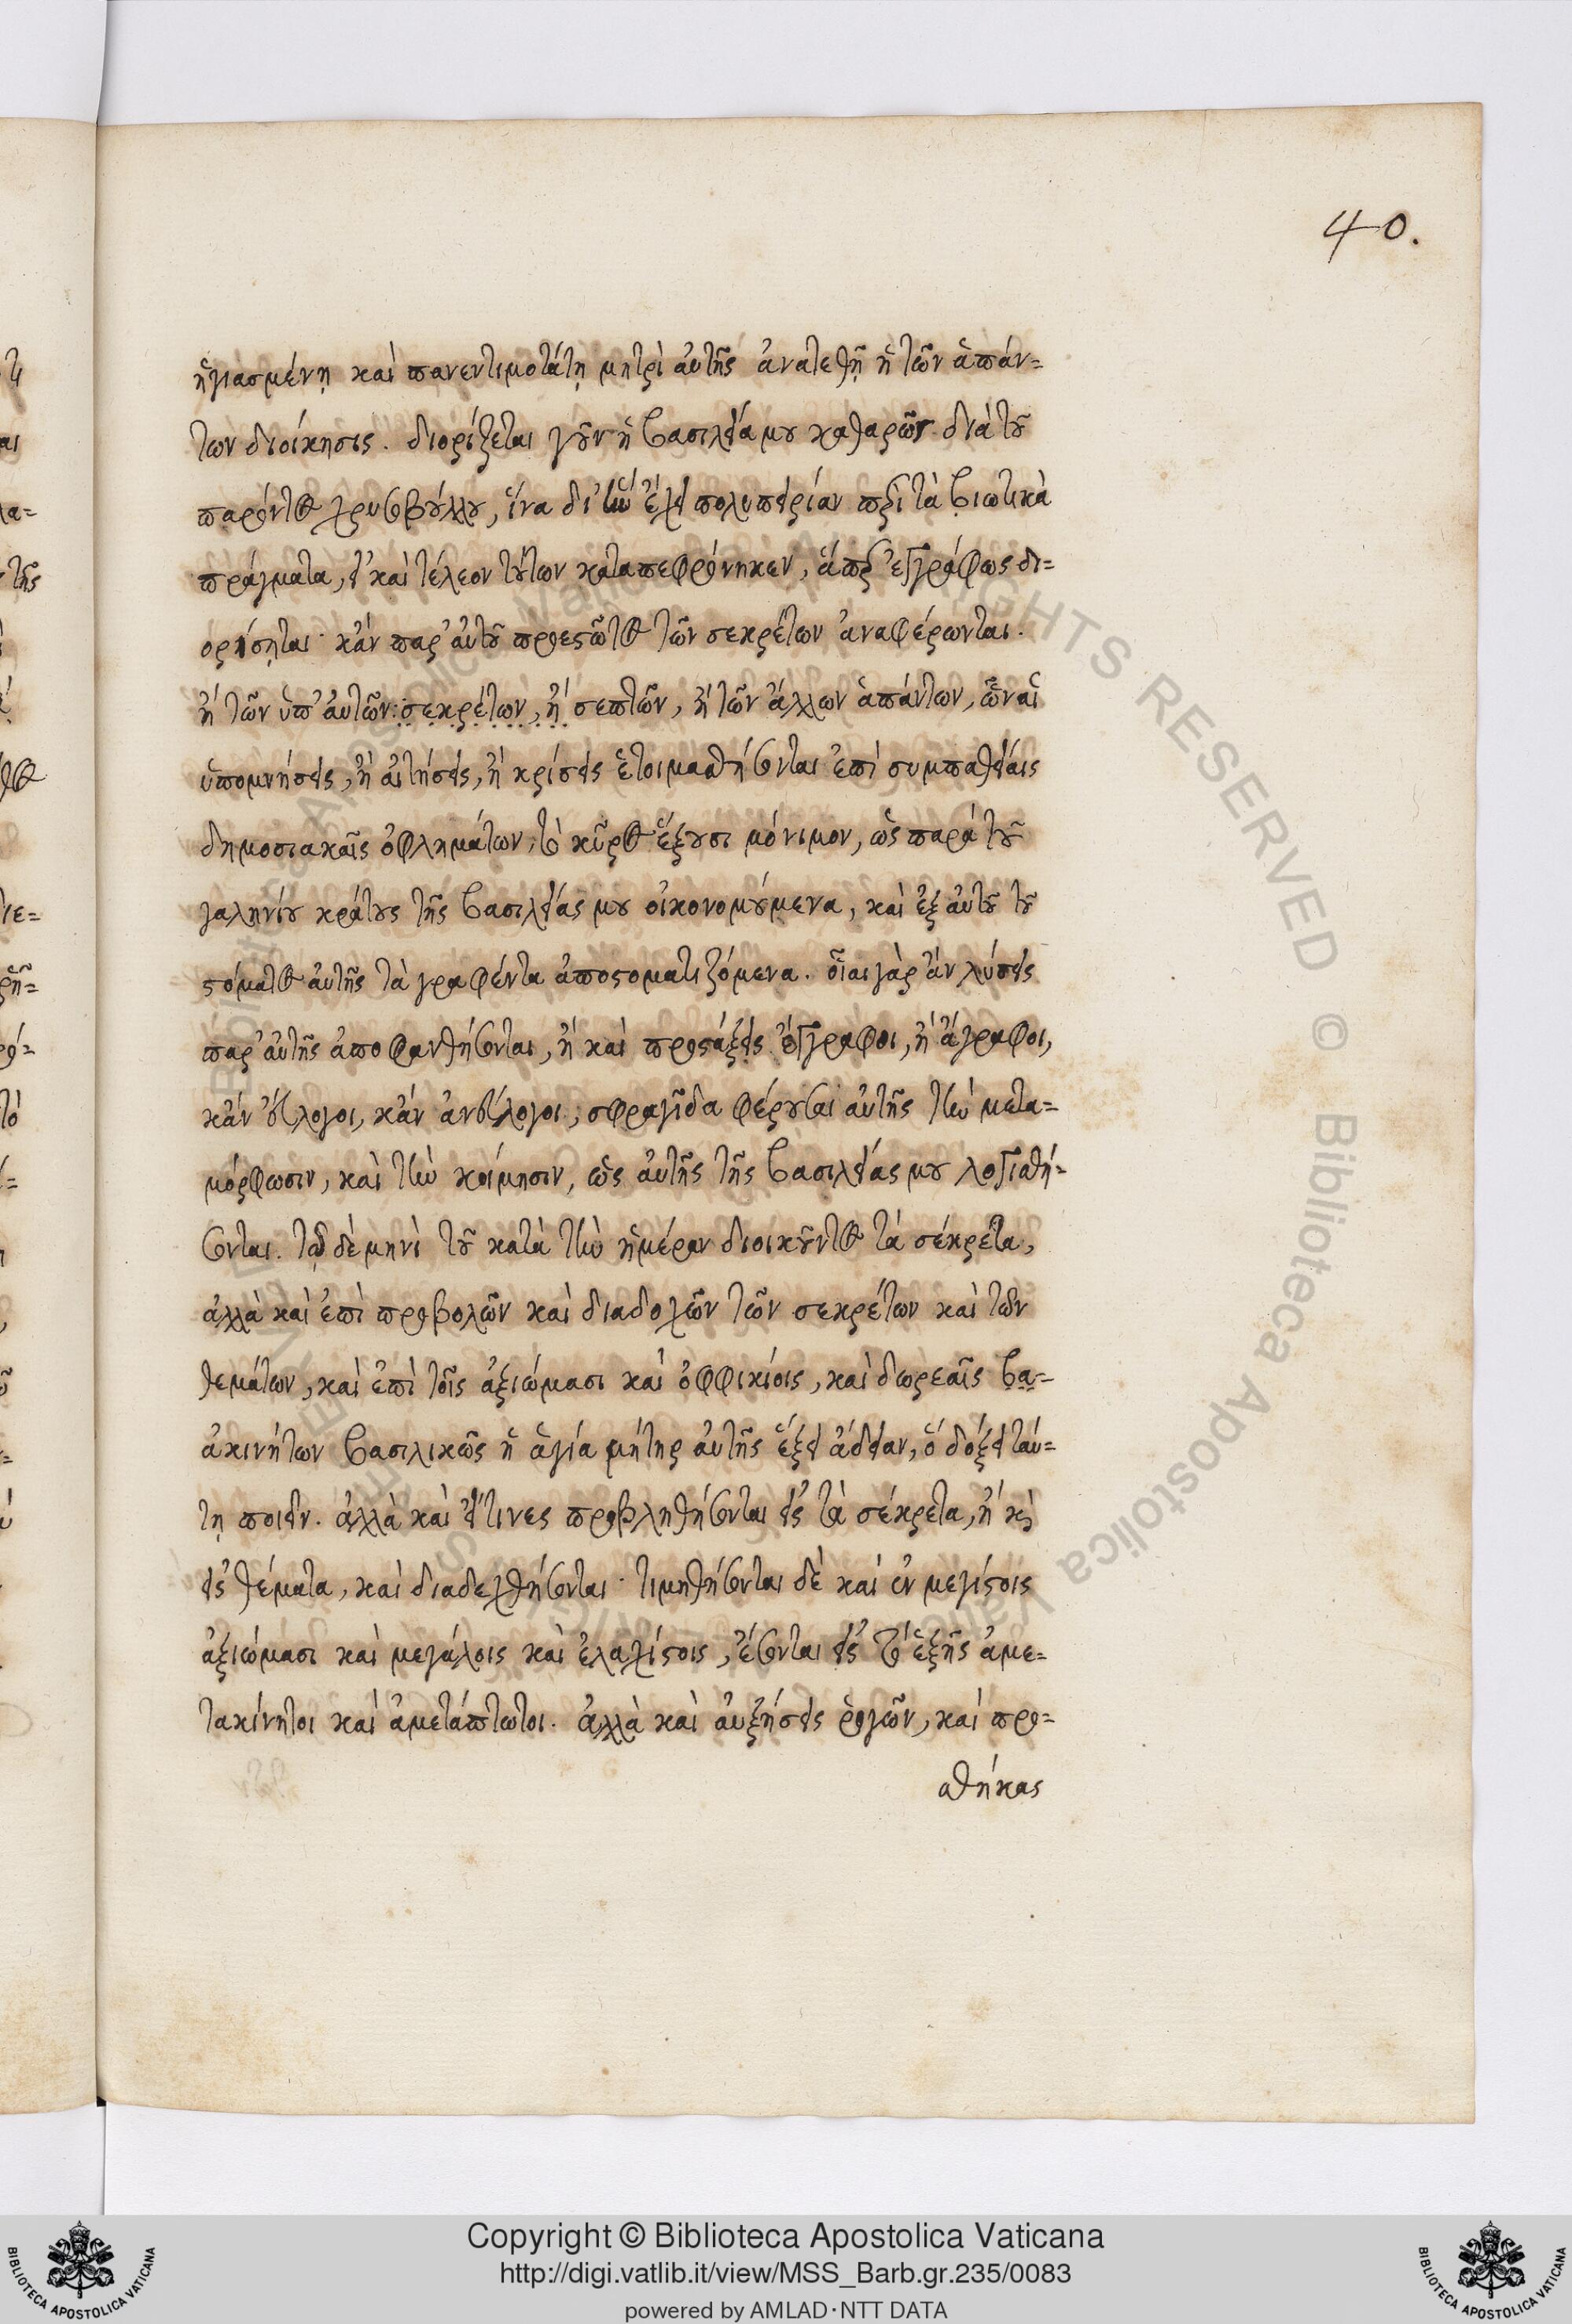 40.
ἡγιασμένῃ καὶ πανεντιμοτάτῃ μητρὶ αὐτῆς ἀνατεθῇ ἡ τῶν ἁπάν=
των διοίκησις. διορίζεται γοῦν ἡ βασιλεία μου καθαρῶς διὰ τοῦ
παρόντος χρυσοβούλλου, ἵνα δι' ἣν ἔχει πολυπειρίαν περὶ τὰ βιωτικὰ
πράγματα, εἰ καὶ τέλεον τούτων καταπεφρόνηκεν, ἅπερ ἐγγράφως δι=
ορίσηται· κἂν παρ' αὐτοῦ προεστῶτος τῶν σεκρέτων ἀναφέρωνται.
ἢ τῶν ὑπ' αὐτῶν: σεκρέτων, ἢ σεπτῶν, ἢ τῶν ἄλλων ἁπάντων, ὧν αἱ
ὑπομνήσεις, ἢ αἰτήσεις, ἢ κρίσεις ἑτοιμασθήσονται ἐπὶ συμπαθείαις
δημοσιακαῖς ὀφλημάτων, τὸ κῦρος ἕξουσι μόνιμον, ὡς παρὰ τοῦ
γαληνίου κράτους τῆς βασιλείας μου οἰκονομούμενα, καὶ ἐξ αὐτοῦ τοῦ
στόματος αὐτῆς τὰ γραφέντα ἀποστοματιζόμενα. οἷαι γὰρ ἂν λύσεις
παρ' αὐτῆς ἀποφανθήσονται, ἢ καὶ προστάξεις ἔγγραφοι, ἢ ἄγραφοι,
κἂν εὔλογοι, κἂν ἀντίλογοι, σφραγῖδα φέρουσαι αὐτῆς τὴν μετα=
μόρφωσιν, καὶ τὴν κοίμησιν, ὡς αὐτῆς τῆς βασιλείας μου λογισθή=
σονται. τῷ δὲ μηνὶ τοῦ κατὰ τὴν ἡμέραν διοικοῦντος τὰ σέκρετα,
ἀλλὰ καὶ ἐπὶ προβολῶν καὶ διαδοχῶν τῶν σεκρέτων καὶ τῶν
θεμάτων, καὶ ἐπὶ τοῖς ἀξιώμασι καὶ ὀφφικίοις, καὶ δωρεαῖς βα=
ἀκινήτων βασιλικῶς ἡ ἁγία μήτηρ αὐτῆς ἕξει ἄδειαν, ὃ δόξει ταύ=
τῃ ποιεῖν. ἀλλὰ καὶ εἴτινες προβληθήσονται εἰς τὰ σέκρετα, ἢ καὶ
εἰς θέματα, καὶ διαδεχθήσονται· τιμηθήσονται δὲ καὶ ἐν μεγίστοις
ἀξιώμασι καὶ μεγάλοις καὶ ἐλαχίστοις, ἔσονται εἰς τὸ ἑξῆς ἀμε=
τακίνητοι καὶ ἀμετάπτωτοι. ἀλλὰ καὶ αὐξήσεις ῥογῶν, καὶ προ=
σθήκας
ALL RIGHTS RESERVED © Biblioteca Apostolica Vaticana
Copyright © Biblioteca Apostolica Vaticana
http://digi.vatlib.it/view/MSS_Barb.gr.235/0083
powered by AMLAD·NTT DATA
BIBLIOTECA APOSTOLICA VATICANA
BIBLIOTECA APOSTOLICA VATICANA